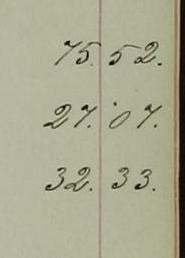 75. 52.
27. 07.
32. 33.